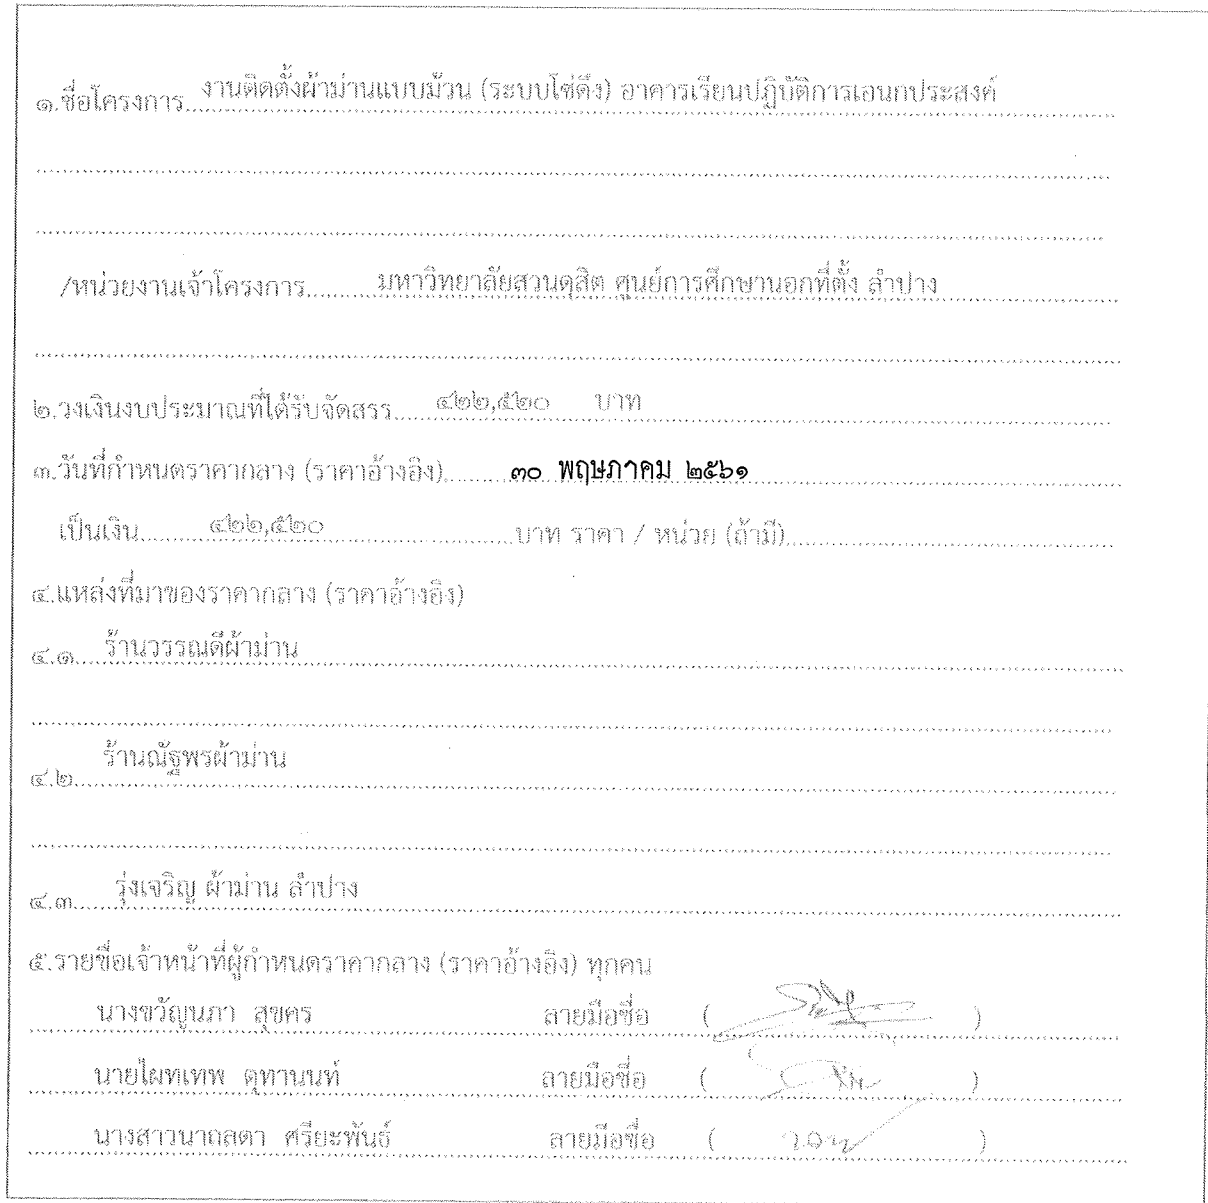 ๑.ชื่อโครงการ งานติดตั้งผ้าม่านแบบม้วน (ระบบโซ่ดึง) อาคารเรียนปฏิบัติการเอนกประสงค์
/หน่วยงานเจ้าโครงการ มหาวิทยาลัยสวนดุสิต ศูนย์การศึกษานอกที่ตั้ง ลำปาง
๒.วงเงินงบประมาณที่ได้รับจัดสรร ๔๒๒,๕๒๐ บาท
๓.วันที่กำหนดราคากลาง (ราคาอ้างอิง) ๓๐ พฤษภาคม ๒๕๖๑
เป็นเงิน ๔๒๒,๕๒๐ บาท ราคา / หน่วย (ถ้ามี)
๔.แหล่งที่มาของราคากลาง (ราคาอ้างอิง)
๔.๑ ร้านวรรณดีผ้าม่าน
๔.๒ ร้านณัฐพรผ้าม่าน
๔.๓ รุ่งเจริญ ผ้าม่าน ลำปาง
๕.รายชื่อเจ้าหน้าที่ผู้กำหนดราคากลาง (ราคาอ้างอิง) ทุกคน
นางขวัญนภา สุขคร ลายมือชื่อ ( )
นายไผทเทพ ดุทานนท์ ลายมือชื่อ ( )
นางสาวนาถลดา ศรียะพันธ์ ลายมือชื่อ ( )